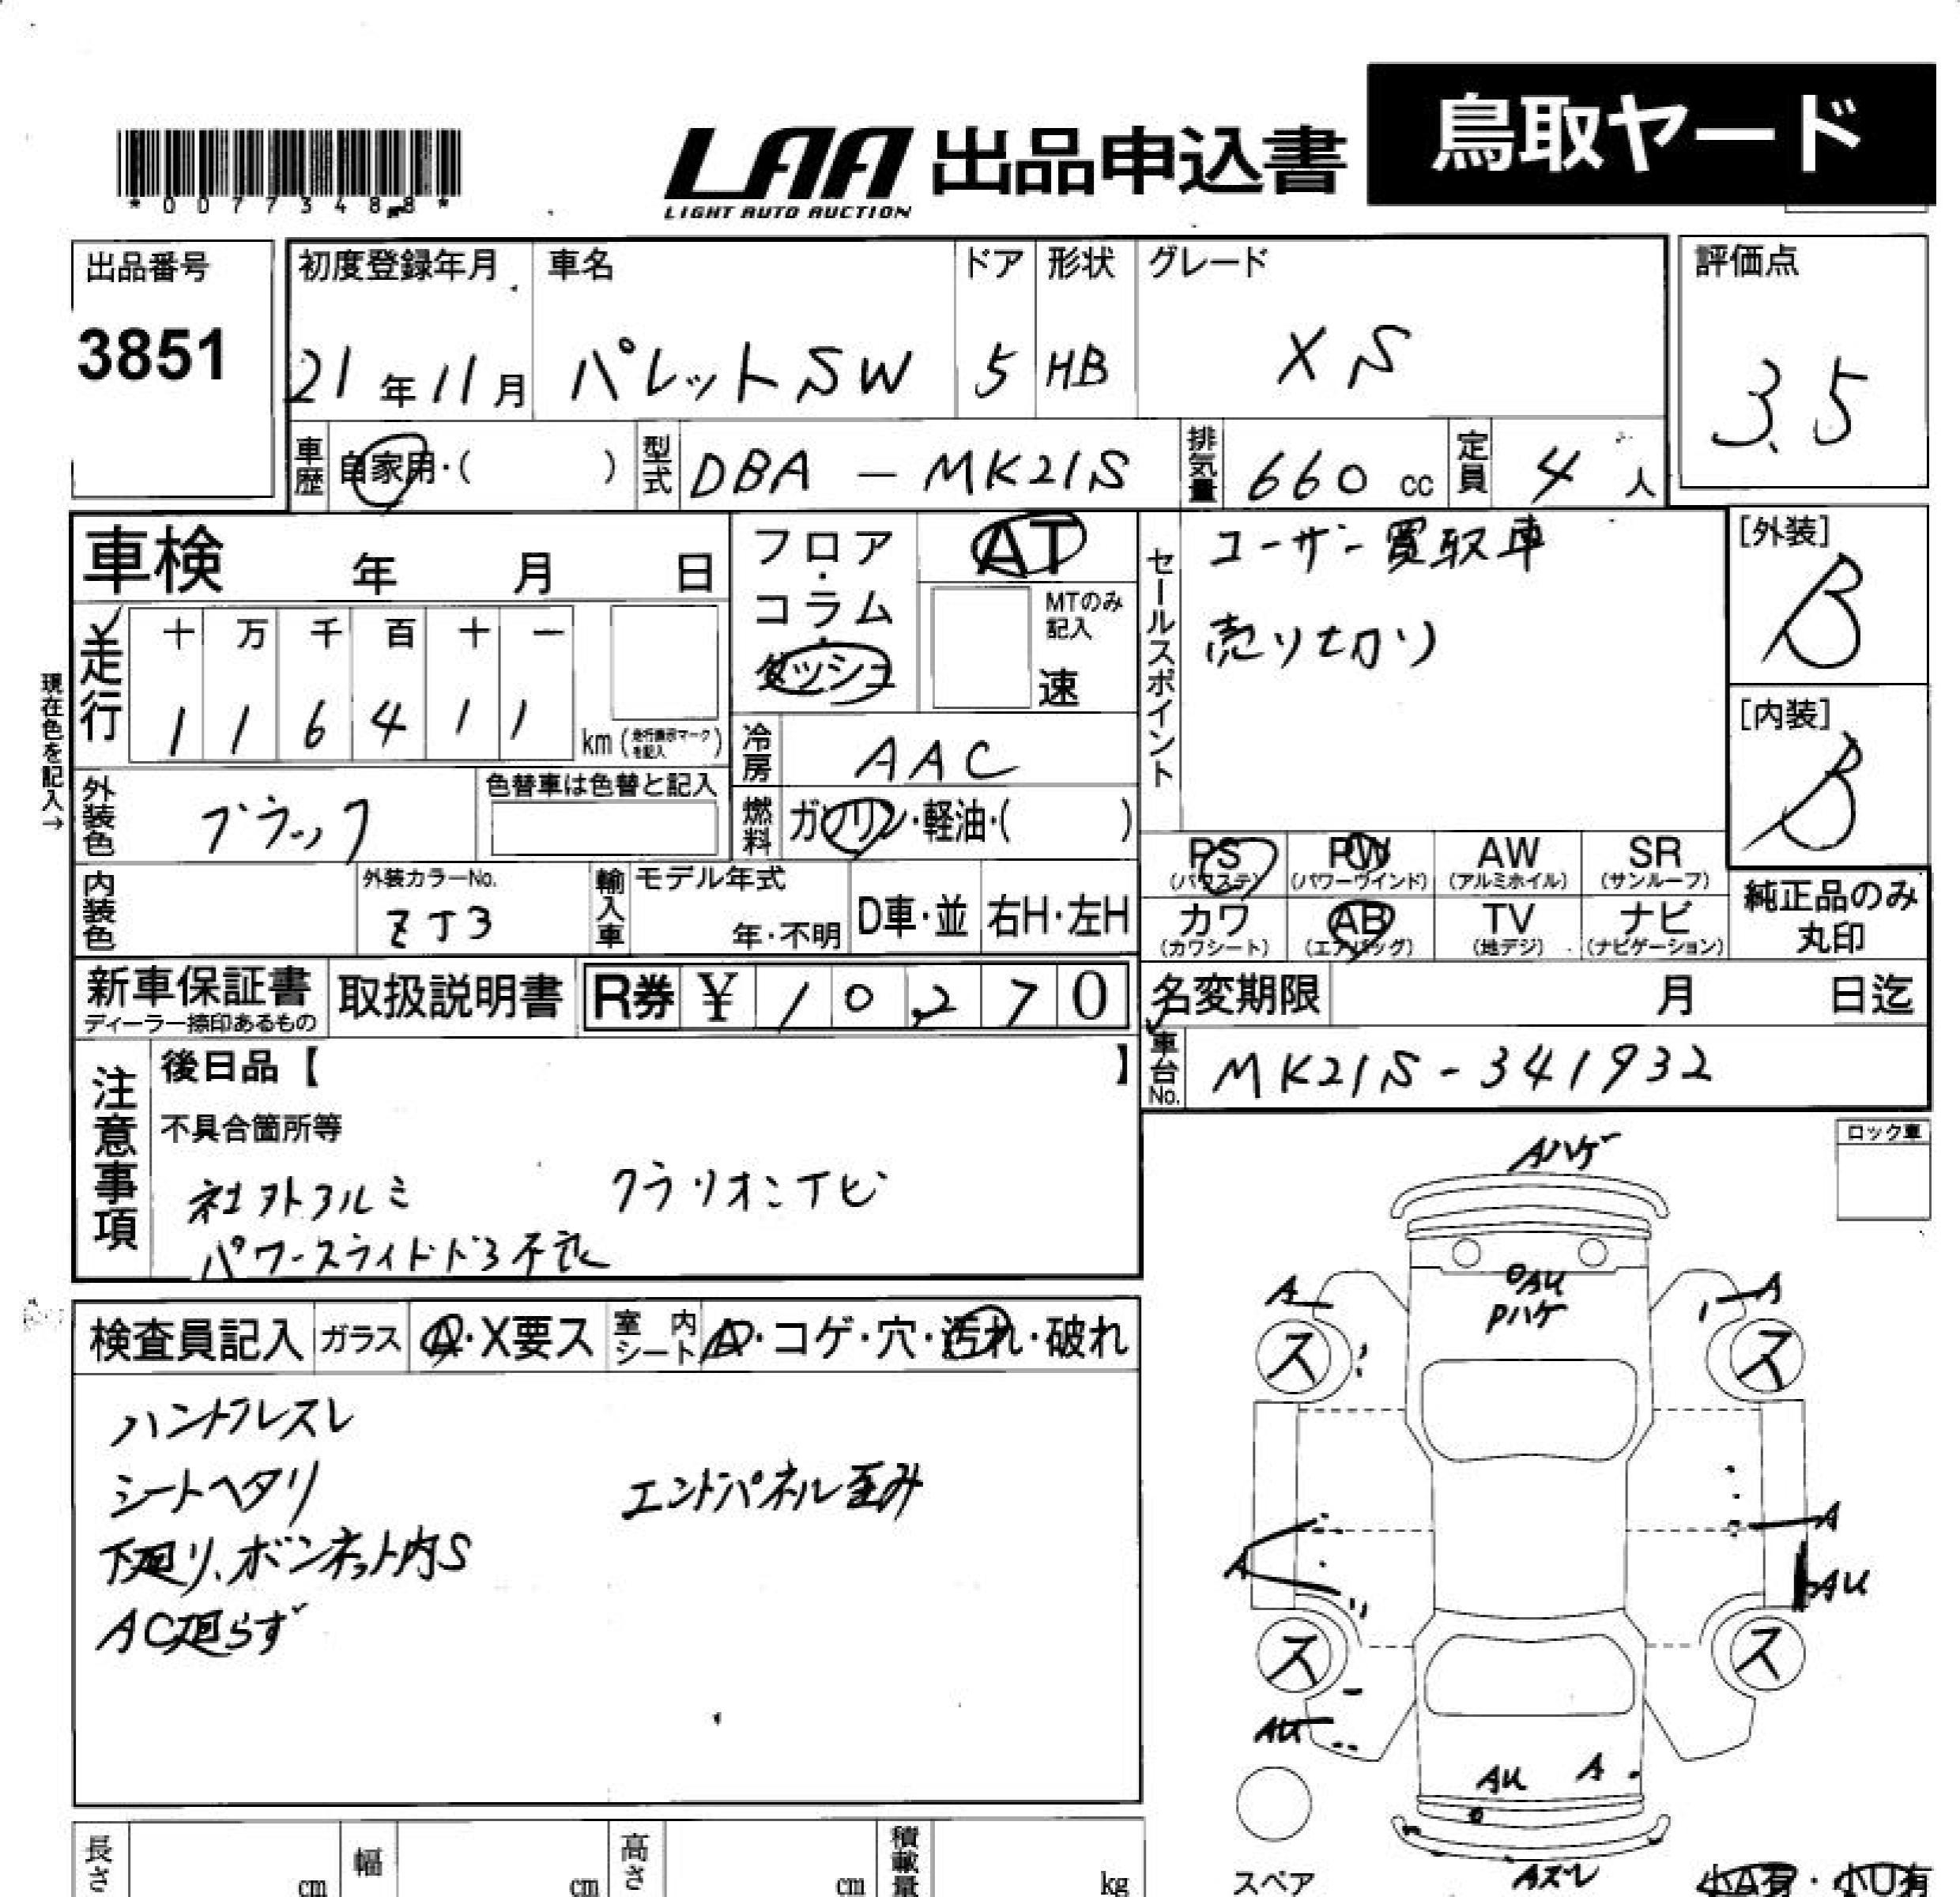 鳥取ヤード
LAA 出品申込書
LIGHT AUTO AUCTION
*0077348*
出品番号 初度登録年月 車名 ドア 形状 グレード 評価点
3851 21年11月 パレットSW 5 HB XS 3.5
車歴 自家用・( ) 型式 DBA-MK21S 排気量 660cc 定員 4人
車検 年 月 日 フロア・コラム・ダッシュ AT セールスポイント ユーザー買取車 [外装] B
MTのみ記入 速 売り切り
走行 十万千百十一
116411 km(走行表示マークを記入)
現在色を記入→
[内装] B
冷房 AAC
外装色 ブラック 色替車は色替と記入
燃料 ガソリン・軽油・( )
PS(パワステ) PW(パワーウインド) AW(アルミホイル) SR(サンルーフ)
カワ(カワシート) AB(エアバッグ) TV(地デジ) ナビ(ナビゲーション) 純正品のみ丸印
内装色 外装カラーNo. ZJ3 輸入車 モデル年式 年・不明 D車・並 右H・左H
新車保証書 ディーラー捺印あるもの 取扱説明書 R券 ¥10,270 名変期限 月 日迄
車台No. MK21S-341932
注意事項 後日品【 】
不具合箇所等
社外アルミ クラリオンナビ
パワースライドドア不良
ロック車
検査員記入 ガラス A・X要ス 室内シート A・コゲ・穴・汚れ・破れ
シートヘタリ エンドパネル歪み
下廻り、ボンネット内S
AC廻らず
Aハゲ
AU
Pハゲ
A A
ス ス
A
A AU
ス ス
AU
AU A
Aズレ
スペア
小A有・小U有
長さ cm 幅 cm 高さ cm 積載量 kg